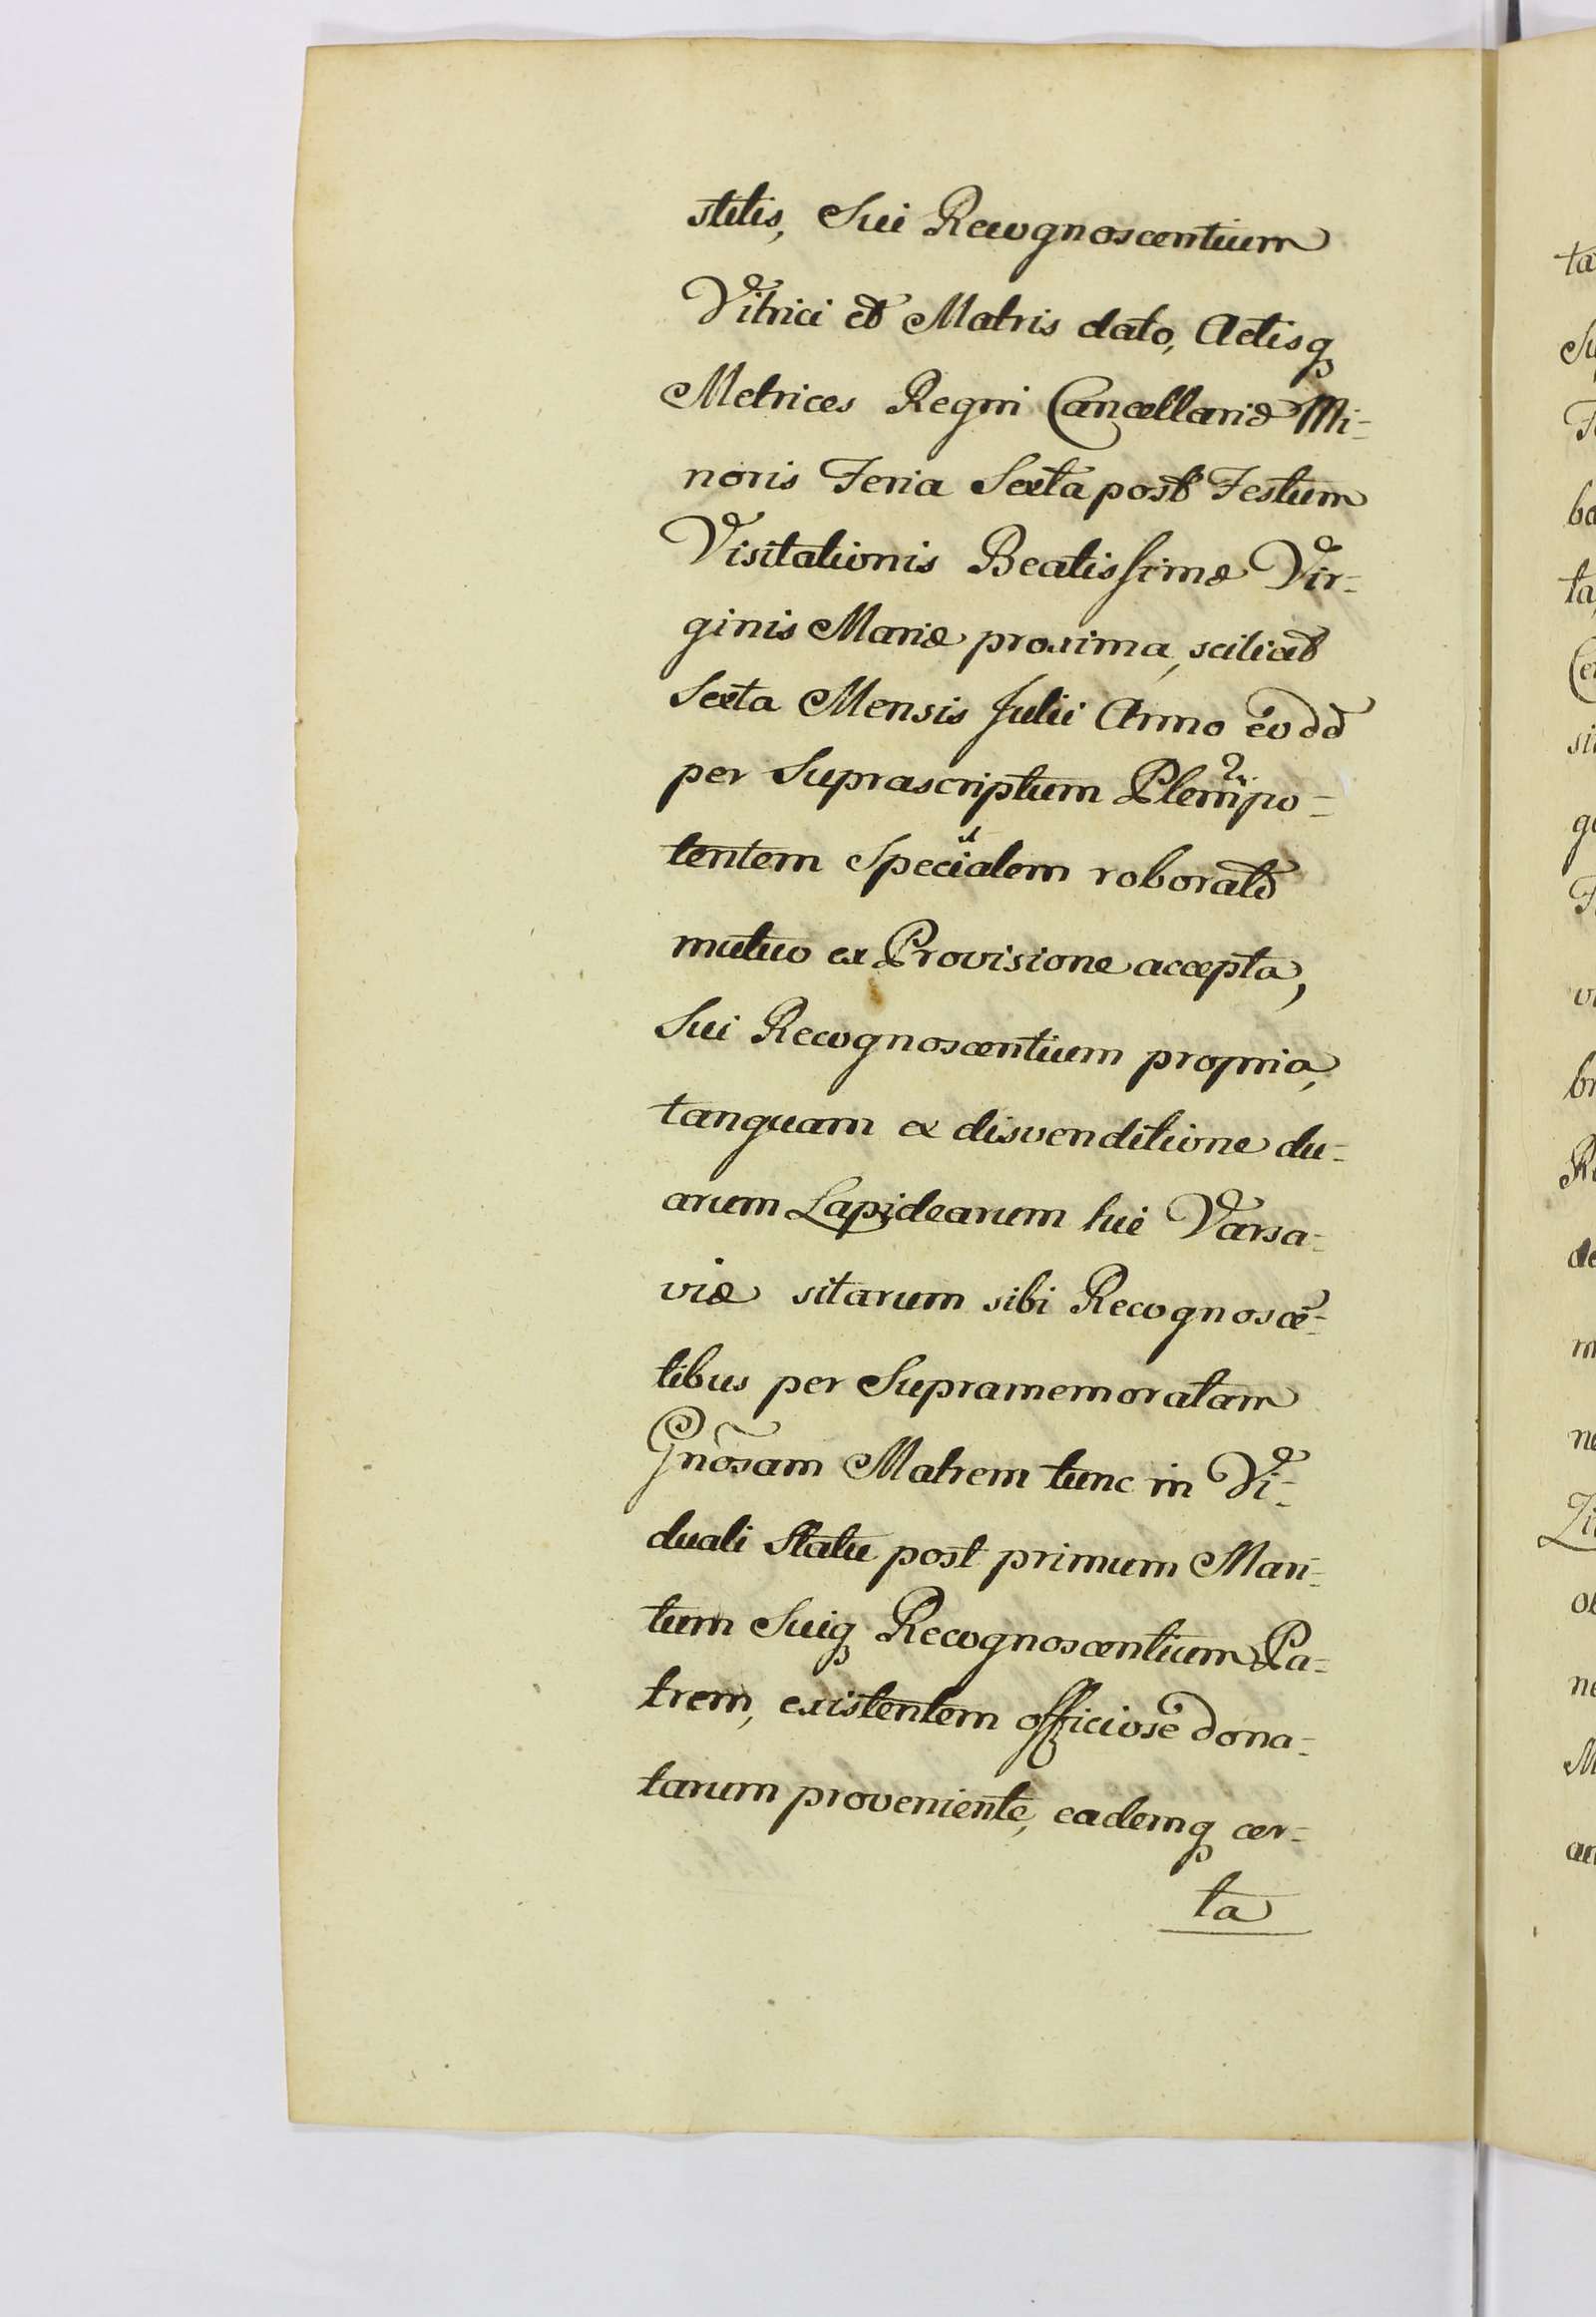 stitis, Sui Recognoscentium
Vitrici et Matris dato, Actisq
Metrices Regni Cancellariæ Mi-
noris Feria Sexta post Festum
Visitationis Beatissimæ Vir-
ginis Mariæ proxima, scilicet
Sexta Mensis Julii Anno eodd
per Suprascriptum Plenipo-
tentem Specialem roborato
mutuo ex Provisione accepta,
Sui Recognoscentium propria,
tanquam ex disvenditione du-
arum Lapidearum hic Varsa-
viæ sitarum sibi Recognoscē-
tibus per Supramemoratam
Gnõsam Matrem tunc in Vi-
duali Statu post primum Mari-
tum Suiq Recognoscentium Pa-
trem, existentem officiose dona-
tarum proveniente, eademq cer-
ta